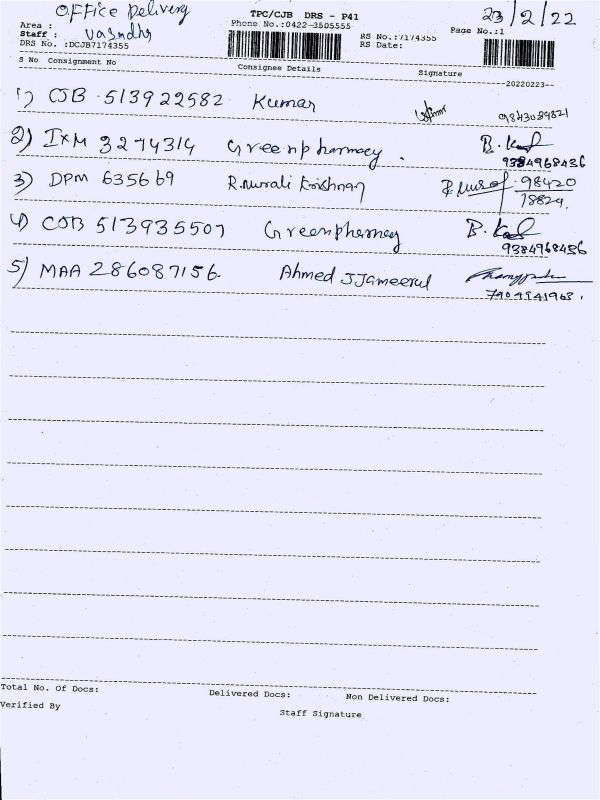 OFFice Delivery
TPC/CJB DRS - P41
23/2/22
Area :
Phone No.:0422-3505555
Page No.:1
Staff : Vasndhr
RS No.:7174355
DRS No. :DCJB7174355
RS Date:
S No Consignment No Consignee Details Signature
20220223
1) CJB 513922582 Kumar
2) IXM 3274314 Greenpharmacy . B.
9384968436
3) DPM 635669 R.murali Krishnan 98420
78829.
4) COB 513935507 Greenpharmacy B.
9384968456
5) MAA 286087156. Ahmed JJameerul
Total No. Of Docs: Delivered Docs: Non Delivered Docs:
Verified By
Staff Signature